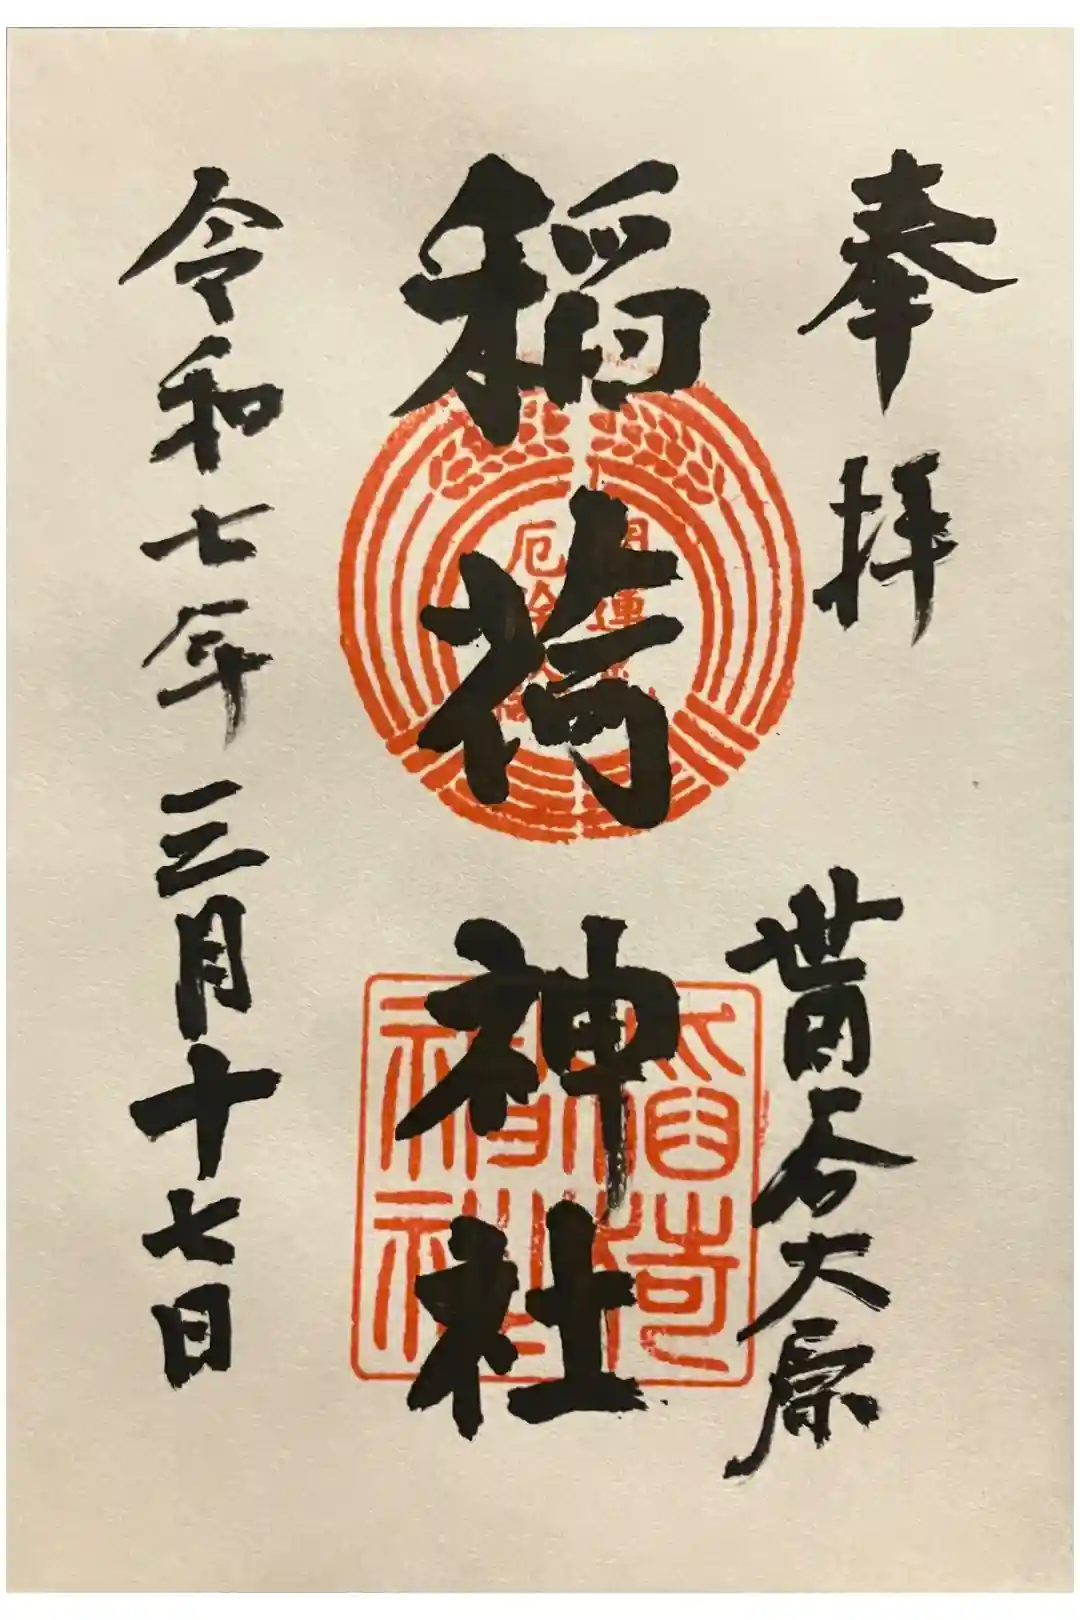 奉拝
世田谷大原
稲荷神社
開運
厄除
稲荷
神社
令和七年三月十七日